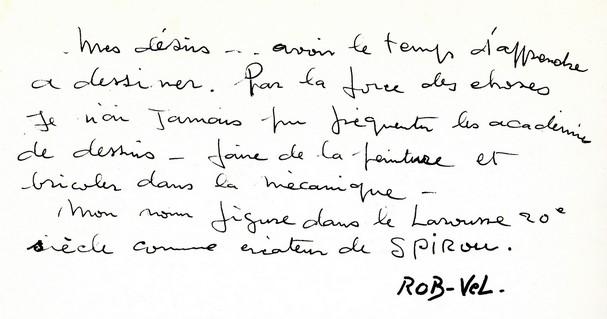 Mes désirs -.. avoir le temps d'apprendre
a dessiner. Par la force des choses
Je n'ai Jamais pu fréquenter les académie
de dessins - faire de la peinture et
bricoler dans la mécanique -
Mon nom figure dans le Larousse 20e
siècle comme créateur de SPIROU.
ROB-VEL.